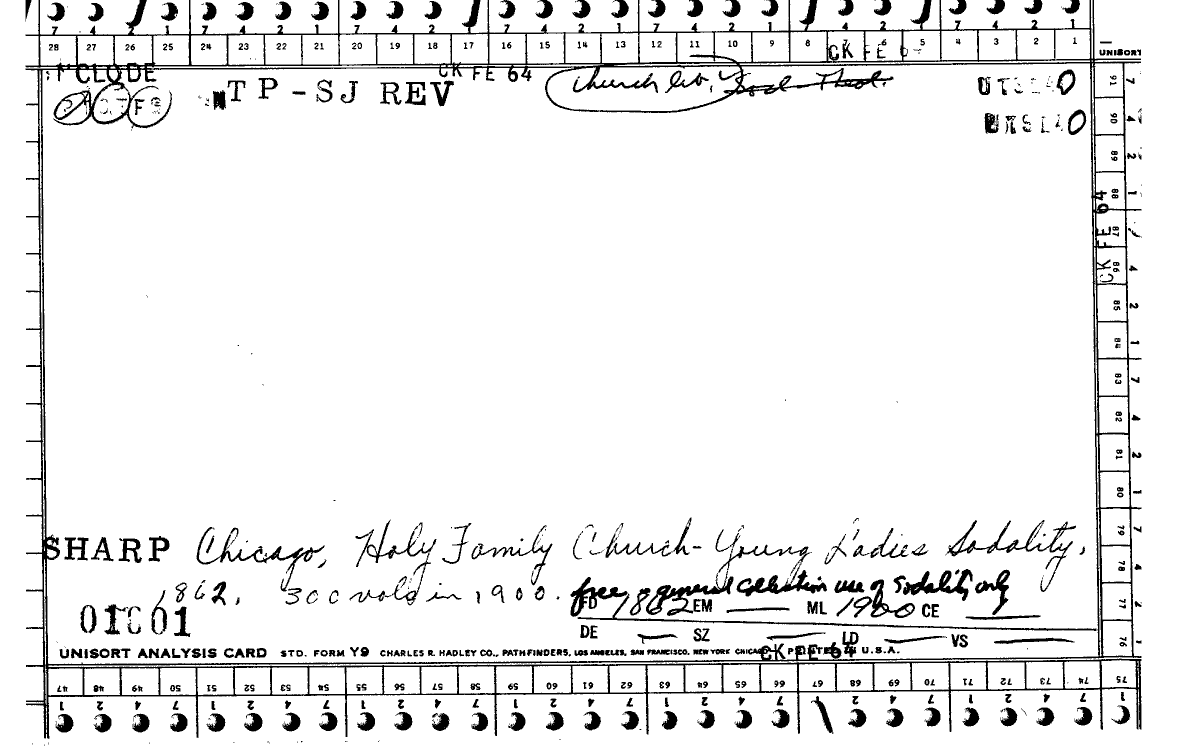 7 4 2 1 7 4 2 1 7 4 2 1 7 4 2 1 7 4 2 1 7 4 2 1 7 4 2 1
28 27 26 25 24 23 22 21 20 19 18 17 16 15 14 13 12 11 10 9 8 7 6 5 4 3 2 1
CK FE 6
UNISORT
CLODE CK FE 64
TP-SJ REV Church lib. Socl Theol.
91 90 89 88 87 86 85 84 83 82 81 80 79 78 77 76
7 4 2 1 4 2 1 7 4 2 1 7 4 2 1
CK FE 64
SHARP Chicago, Holy Family Church-Young Ladies Sodality,
1862, 300 vols in 1900. free general collection use of Sodality only
01C01
FD 1862 EM — ML 1900 CE —
DE — SZ — LD — VS —
UNISORT ANALYSIS CARD STD. FORM Y9 CHARLES R. HADLEY CO., PATHFINDERS, LOS ANGELES, SAN FRANCISCO, NEW YORK CHICAGO PRINTED IN U.S.A.
CK FE 64
47 48 49 50 51 52 53 54 55 56 57 58 59 60 61 62 63 64 65 66 67 68 69 70 71 72 73 74 75
1 2 4 7 1 2 4 7 1 2 4 7 1 2 4 7 1 2 4 7 1 2 4 7 1 2 4 7 1